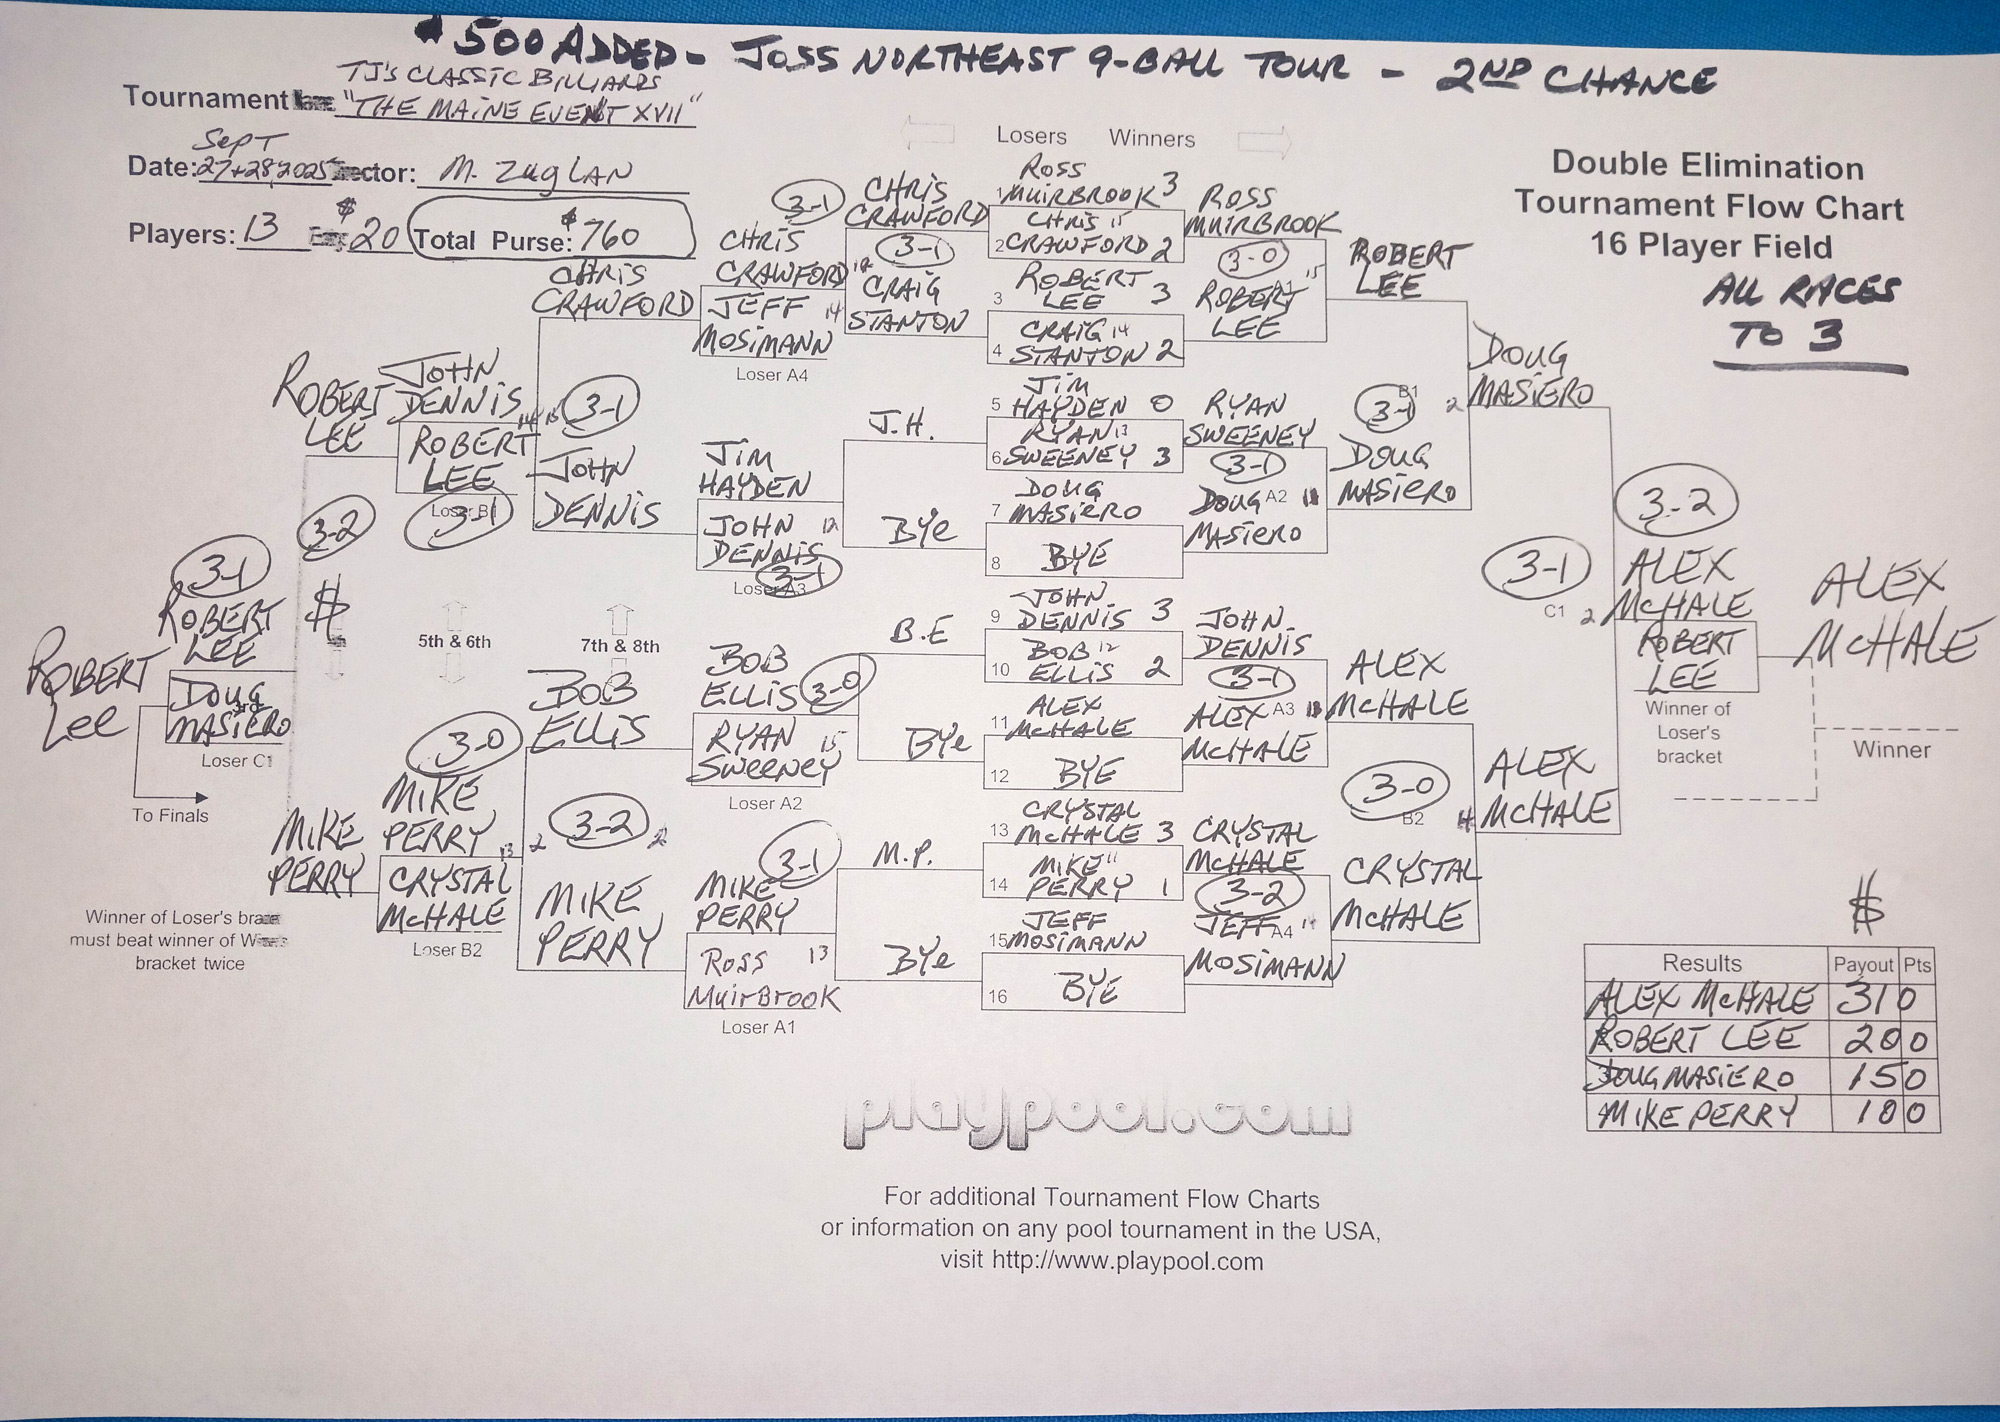 $500 ADDED - JOSS NORTHEAST 9-BALL TOUR - 2ND CHANCE
TJ'S CLASSIC BILLIARDS
Tournament "THE MAINE EVENT XVII"
Sept
Date: 27+28, 2025 ector: M. ZUGLAN
Players: 13 $20 Total Purse: $760
Losers Winners
Double Elimination
Tournament Flow Chart
16 Player Field
ALL RACES
TO 3
1 ROSS MUIRBROOK 3
2 CHRIS CRAWFORD 15 2
3 ROBERT LEE 3
4 CRAIG STANTON 14 2
5 JIM HAYDEN 0
6 RYAN SWEENEY 13 3
7 DOUG MASIERO
8 BYE
9 JOHN DENNIS 3
10 BOB ELLIS 12 2
11 ALEX McHALE
12 BYE
13 CRYSTAL McHALE 3
14 MIKE PERRY 11 1
15 JEFF MOSIMANN
16 BYE
ROSS MUIRBROOK
3-0
A1 15
ROBERT LEE
RYAN SWEENEY
3-1
A2
DOUG MASIERO
JOHN DENNIS
3-1
A3
ALEX McHALE
CRYSTAL McHALE
3-2
A4 14
JEFF MOSIMANN
ROBERT LEE
3-1
B1 2
DOUG MASIERO
ALEX McHALE
3-0
B2 14
CRYSTAL McHALE
DOUG MASIERO
3-1
C1 2
ALEX McHALE
3-2
ALEX McHALE
ROBERT LEE
Winner of
Loser's
bracket
ALEX McHALE
Winner
CHRIS CRAWFORD
3-1
CRAIG STANTON
J.H.
BYE
B.E
BYE
M.P.
BYE
3-1
CHRIS CRAWFORD 12
JEFF MOSIMANN 14
Loser A4
JIM HAYDEN
JOHN DENNIS 12
3-1
Loser A3
BOB ELLIS
3-0
RYAN SWEENEY 15
Loser A2
3-1
MIKE PERRY
ROSS MUIRBROOK 13
Loser A1
CHRIS CRAWFORD
15
3-1
JOHN DENNIS
7th & 8th
BOB ELLIS
2 3-2 2
MIKE PERRY
JOHN DENNIS 14
ROBERT LEE
Loser B1
3-1
5th & 6th
3-0
MIKE PERRY 13
CRYSTAL McHALE
Loser B2
ROBERT LEE
3-2
$
MIKE PERRY
3-1
ROBERT LEE
DOUG MASIERO
3rd
Loser C1
ROBERT LEE
To Finals
Winner of Loser's
must beat winner of
bracket twice
$
Results Payout Pts
ALEX McHALE 310
ROBERT LEE 200
3 DOUG MASIERO 150
4 MIKE PERRY 100
playpool.com
For additional Tournament Flow Charts
or information on any pool tournament in the USA,
visit http://www.playpool.com